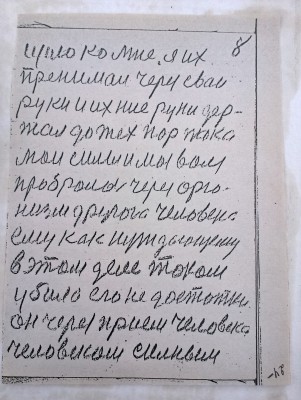 8
шло ко мне, я их
принимал через свои
руки и их ние руки дер-
жал до тех пор пока
мои силы и мы вам
пробрались через орга-
низм другога человека
ему как нуждающему
в этом деле таком
у было его не достатки
он через прием человека
человеком сильным